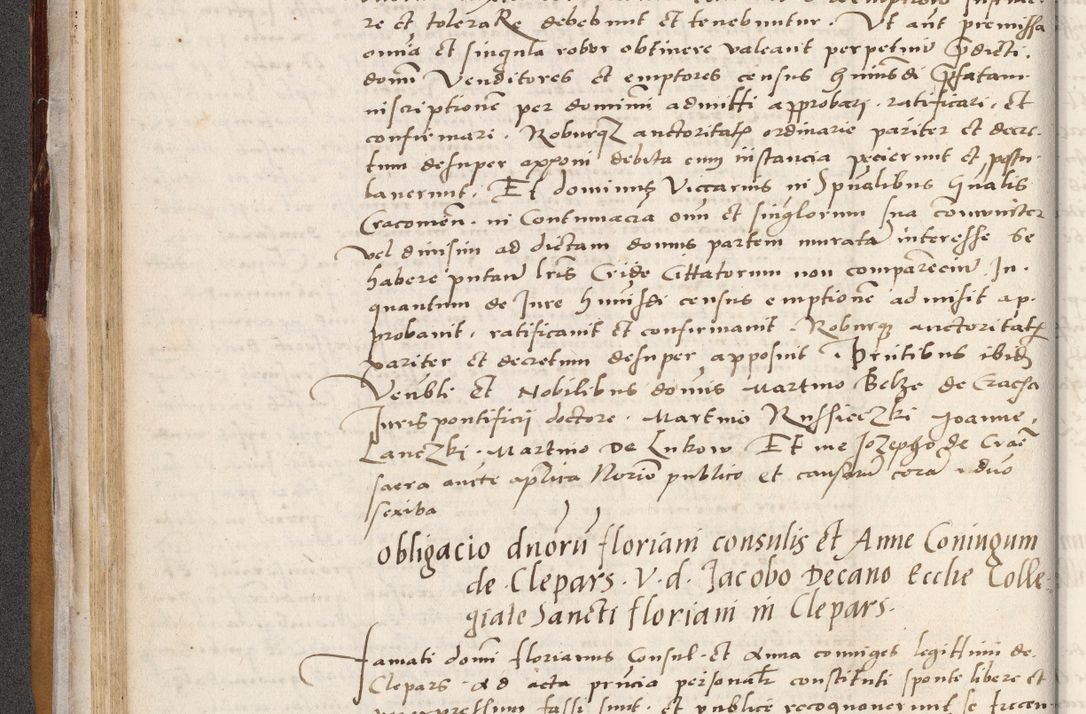 re et toleraRe debebunt et tenebuntur. Ut aut premissa
omia et singula robor obtinere valeant perpetuu pdicti
domi Venditores et emptores census huiusdi pfatam
inscriptionem per dominum admitti approbari. ratificari. et
confirmari. Roburq auctoritatis ordinarie pariter et decre-
tum desuper apponi debita cum instancia pecierunt et postu-
laverunt. Et dominus Viccarius in Spualibus gnalis
Cracovien. in Contumacia oim et singlorum sua comuniter
vel divisim ad dictam domus partem murata interesse se
habere putan lris Cride Cittatorum non comparenciu. In
quantum de Jure huiusdi census emptione admisit ap-
probavit. ratificavit et confirmavit. Roburq auctoritatis
pariter et decretum desuper apposuit. Prntibus ibidem
Venbli et Nobilibus domis Martino Belze de Cracovia
Juris pontificii doctore. Martino Russieczki Joanne
Lanczki. Martino De Lukow Et me Jozepho de Crac
sacra aucte aplica Norio publico et causaru cora
scriba
obligacio dnoru floriani consulis et Anne Coniugum
de Clepars. V. d. Jacobo Decano Ecclie Colle-
giate Sancti floriani in Clepars.
Famati domi florianus Consul. et Anna coniuges legittimi de
Clepars. Ad acta pncia personalr constituti sponte libere et
expressum fassi sunt. et publice recognoverunt se